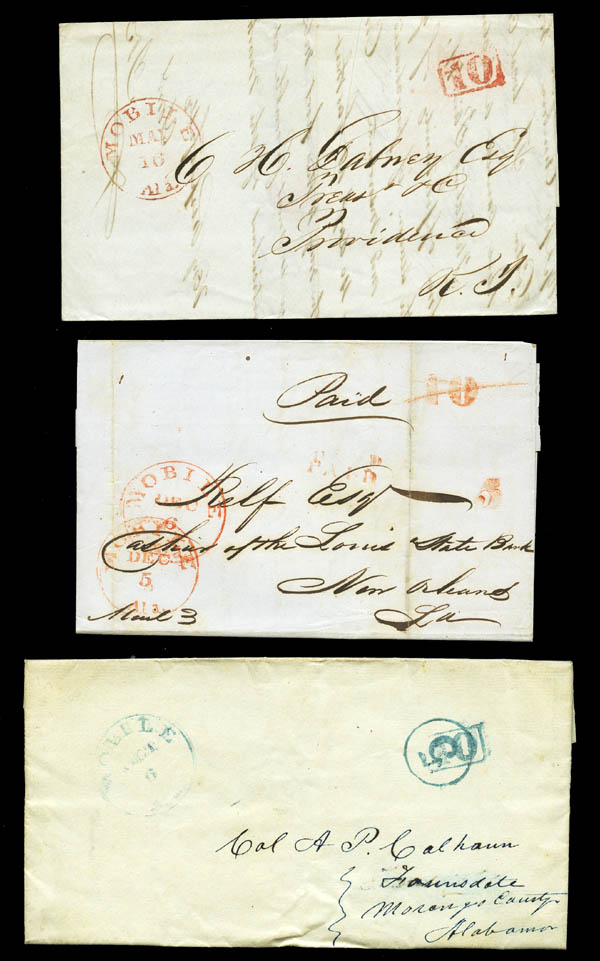 10
MOBILE
MAY
16
Ala.
C H. Dabney Esq
Treasr &c
Providence
R. I.
Paid
10
PAID
5
MOBILE
DEC
6
Relf Esqr
Cashier of the Louis State Bank
MOBILE
DEC
5
Ala.
New Orleans
La
Mail 3
MOBILE
DEC
6
5
10
Col A P. Calhoun
Faunsdale
Morengo County
Alabama